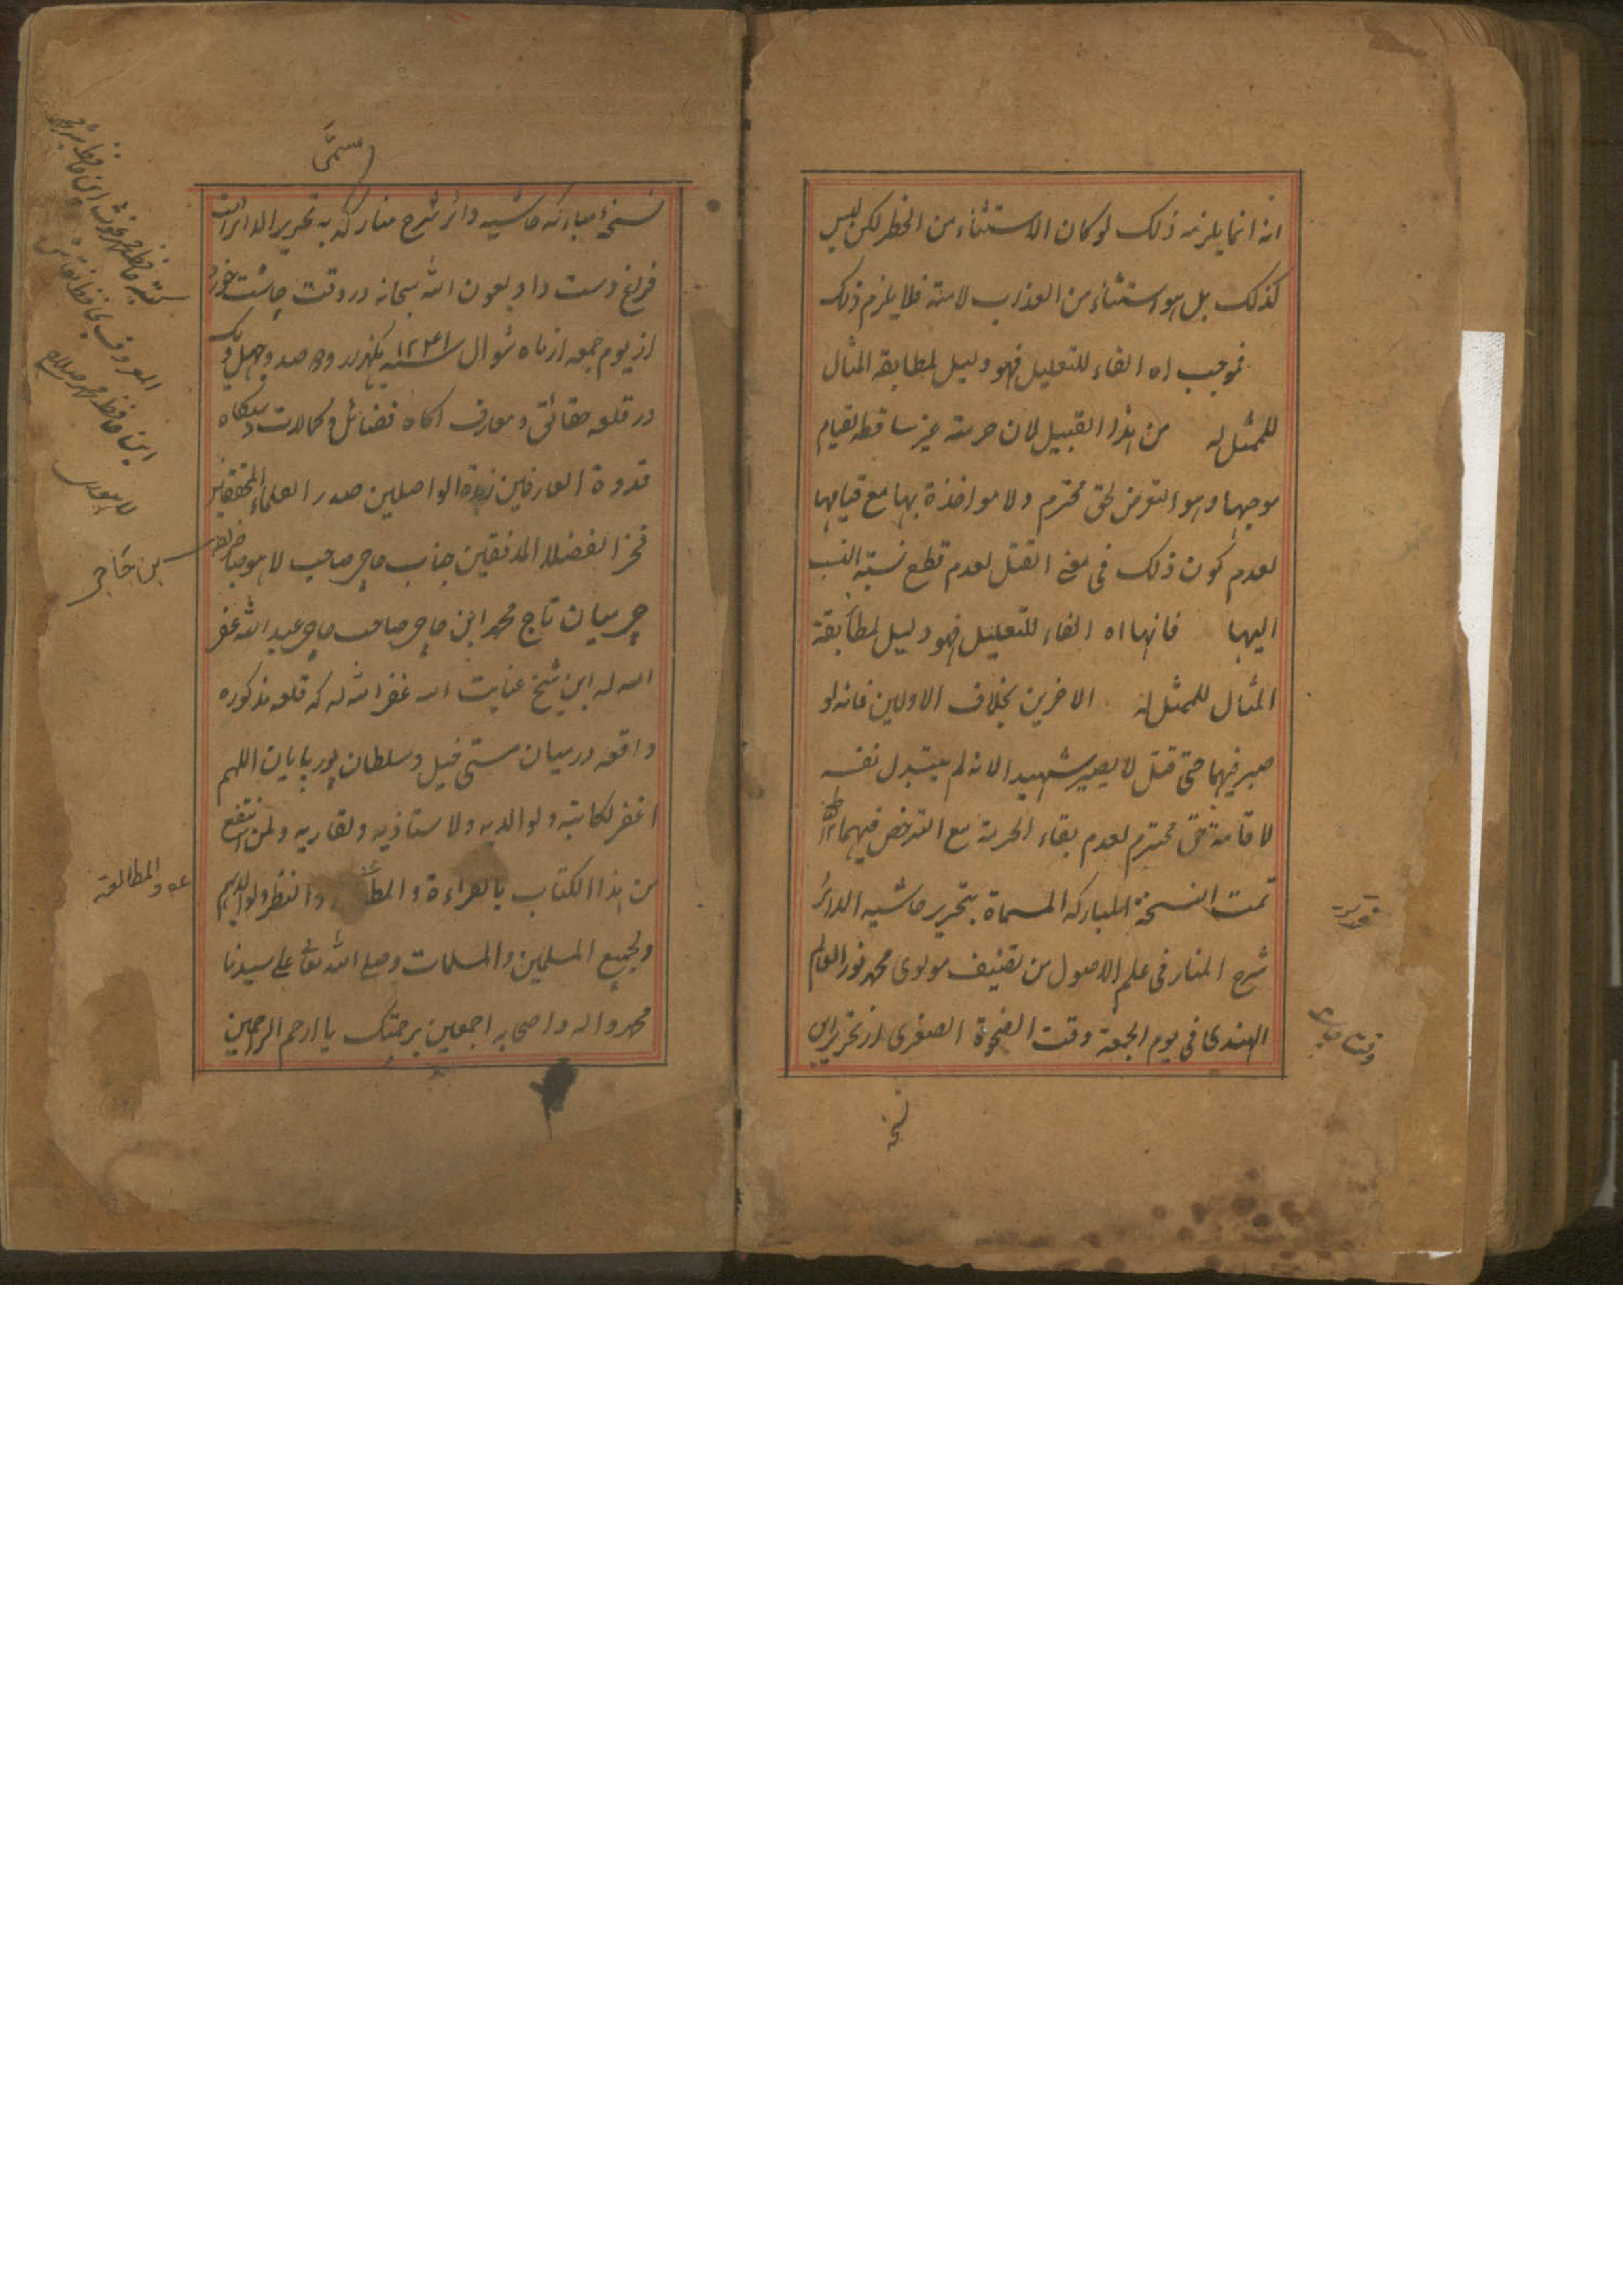 انه انما يلزمه ذلك لو كان الاستثناء من الخطر لكن ليس
كذلك بل هو استثناء من العذاب لا منه فلا يلزم ذلك
فموجب اه الفاء للتعليل فهو دليل لمطابقة المثال
للممثل له من هذا القبيل لان حرمته غير ساقطه لقيام
موجبها وهو التعرض لحق محترم ولا مواخذة بها مع قيامها
لعدم كون ذلك فى معنى القتل لعدم قطع نسبة النسب
اليها فانها اه الفاء للتعليل فهو دليل لمطابقة
المثال للممثل له الاخرين بخلاف الاولين فانه لو
صبر فيهما حتى قتل لا يصير شهيدا لانه لم يبتدل نفسه
لا قامة حق محترم لعدم بقاء الحرمة مع الترخص فيهما
تمت النسخة المباركه المسماة بتحرير حاشيه الدائر
شرح المنار فى علم الاصول من تصنيف مولوى محمد نور العالم
الهندى فى يوم الجمعة وقت الضحوة الصغرى از تحرير اين
نسخه
مسمى
نسخۀ مباركه حاشيه دائر شرح منار كه به تحرير الدائر است
فراغ دست داد بعون الله سبحانه در وقت چاشت خورد
از يوم جمعه از ماه شوال سنه ١٢٤١ يكهزار و دو صد و چهل و يك
در قلعه حقائق و معارف اكاه فضائل و كمالات دستكاه
قدوة العارفين زبدة الواصلين صدر العلماء المحققين
فخر الفضلا المدققين جناب حاجى صاحب
جى ميان تاج محمد ابن حاجى صاحب حاجى عبد الله غفر
الله له ابن شيخ عنايت الله غفر الله له كه قلعه مذكوره
واقعه درميان مستى فيل و سلطان پور پايان اللهم
اغفر لكاتبه ولوالديه ولاستاذيه ولقاريه ولمن انتفع
من هذا الكتاب بالقراءة والنظر ولوالديهم
ولجميع المسلمين والمسلمات وصلى الله تعالى على سيدنا
محمد واله واصحابه اجمعين برحمتك يا ارحم الرحمين
والمطالعة
بن حاجى